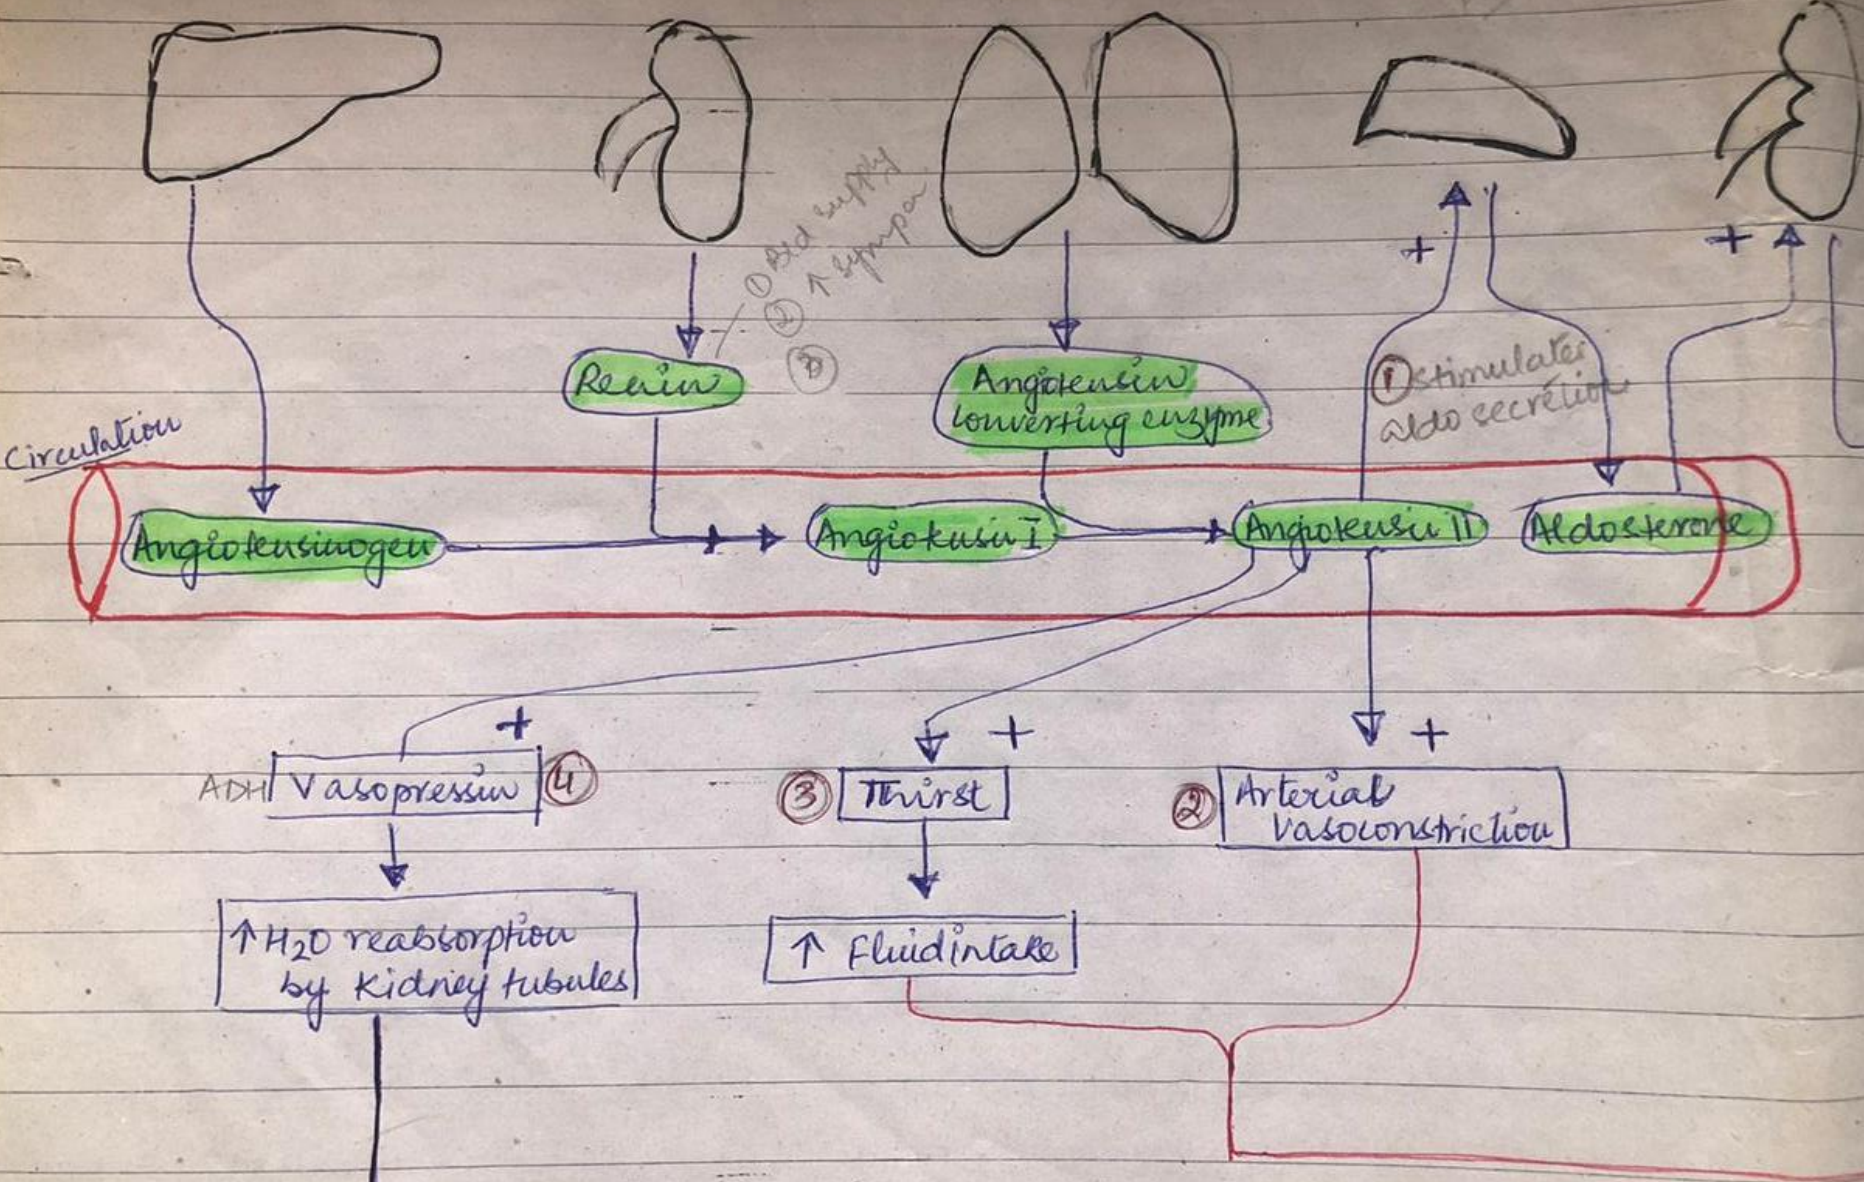 ① Bld supply
② ↑ sympa
③
Renin
Angiotensin
converting enzyme
+
+
① stimulates
aldo secretion
Circulation
Angiotensinogen
Angiotensin I
Angiotensin II
Aldosterone
+
+
+
ADH Vasopressin ④
③ Thirst
② Arterial
vasoconstriction
↑ H₂O reabsorption
by kidney tubules
↑ Fluid intake